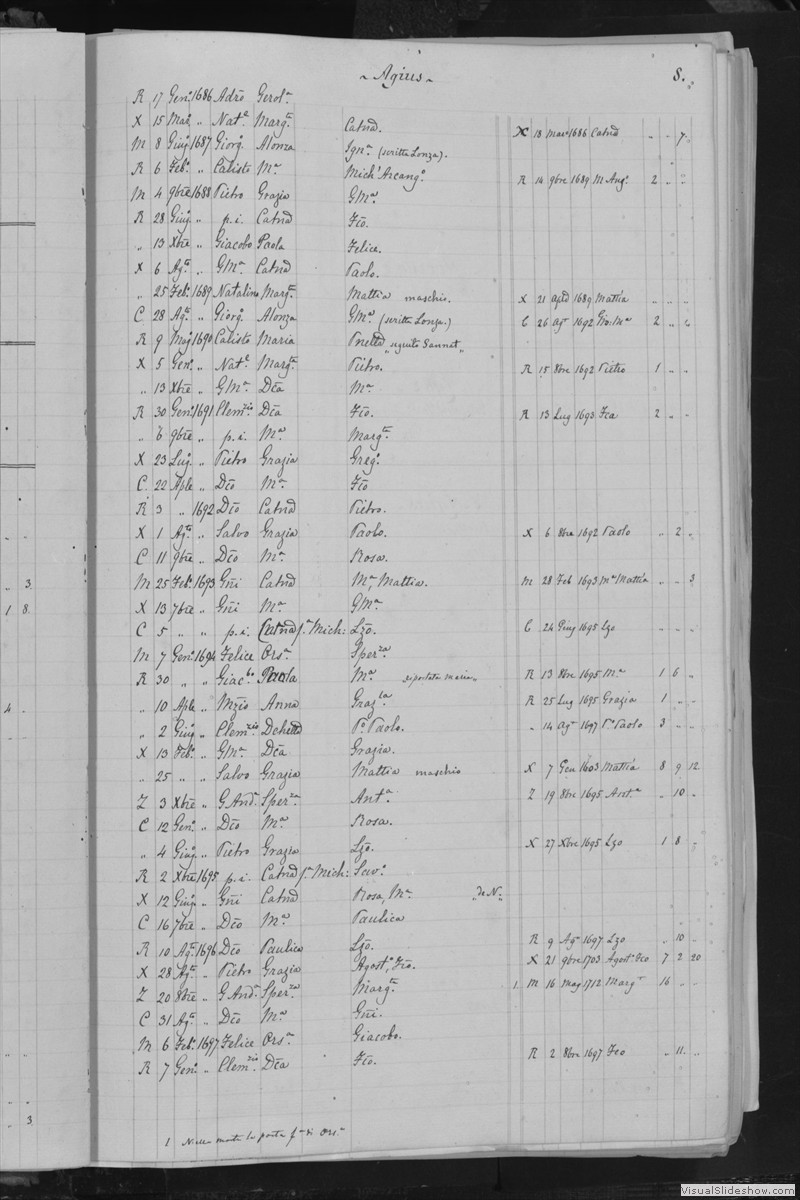 ~ Agius ~ 8.
R 17 Gen.o 1686 Adrio Gerol.a
X 15 Mar. „ Nat.e Marg.ta Catnd. X 18 Mar 1686 Catnd „ „ 7
M 8 Giug. 1687 Giorg. Alonza Ign.a (scritta Lonza).
R 6 Feb.o „ Calisto M.a Mich.l Arcang.o R 14 9bre 1689 M Ang.o 2 „ „
M 4 9bre 1688 Pietro Grazia GM.a
R 28 Giug. „ p.i. Catnd Fco.
„ 13 Xbre „ Giacobo Paola Felice.
X 6 Ag.to „ GM.a Catnd Paolo.
„ 25 Feb.o 1689 Natalino Marg.ta Mattia maschio. X 21 1689 Mattia „ „ „
C 28 Ag.to „ Giorg. Alonza GM.a (scritta Lonza.) C 26 Ag.t 1692 Gio: M.a 2 „ 6
R 9 Mag. 1690 Calisto Maria Pnetta „ Sannat „
X 5 Gen.o „ Nat.e Marg.ta Pietro. R 15 8bre 1692 Pietro 1 „ „
„ 13 Xbre „ GM.a Dca M.a
R 30 Gen.o 1691 Clem.zio Dca Fco. R 13 Lug 1693 Fca 2 „ „
„ 6 9bre „ p.i. M.a Marg.ta
X 23 Lug. „ Pietro Grazia Greg.o
C 22 Aple „ Dco M.a Fco
R 3 „ 1692 Dco Catnd Pietro.
X 1 Ag.to „ Salvo Grazia Paolo. X 6 8bre 1692 Paolo „ 2 „
C 11 9bre „ Dco M.a Rosa.
M 25 Feb.o 1693 Gni Catnd M.a, Mattia. M 28 Feb 1693 M.a Mattia „ „ 3
X 13 7bre „ Gni M.a GM.a
C 5 „ „ p.i. Catnd f.a Mich: Lzo. C 24 Giug 1695 Lzo „ „ „
M 7 Gen.o 1694 Felice Ors.a Sper.za
R 30 „ „ Giac.bo Paola M.a riportata maria „ R 13 8bre 1695 M.a 1 6 „
„ 10 Aple „ Mzio Anna Graz.la R 25 Lug 1695 Grazia 1 „ „
„ 2 Giug. „ Clem.zio P.o Paolo. „ 14 Ag.t 1697 P.o Paolo 3 „ „
X 13 Feb.o „ GM.a Dca Grazia.
„ 25 „ „ Salvo Grazia Mattia maschio X 7 Gen 1603 Mattia 8 9 12
Z 3 Xbre „ G And.a Sper.za Ant.a Z 19 8bre 1695 Ant.a „ 10 „
C 12 Gen.o „ Dco M.a Rosa.
„ 4 Giug. „ Pietro Grazia Lzo. X 27 Xbre 1695 Lzo 1 8 „
R 2 Xbre 1695 p.i. Catnd f.a Mich: Sav.o
X 12 Giug. „ Gni Catnd Rosa, M.a „ de N.
C 16 7bre „ Dco M.a Paulica
R 10 Ag.to 1696 Dco Paulica Lzo. R 9 Ag.t 1697 Lzo „ 10 „
X 28 Ag.to „ Pietro Grazia Agost.o, Fco. X 21 9bre 1703 Agost.o Fco 7 2 20
Z 20 8bre „ G And.a Sper.za Marg.ta 1 M 16 Mag 1712 Marg.ta 16 „ „
C 31 Ag.to „ Dco M.a Gni.
M 6 Feb.o 1697 Felice Ors.a Giacobo.
R 7 Gen.o „ Clem.zio Dca Fco. R 2 8bre 1697 Fco „ 11 „
1 Nella morte la porta f.a di Ors.a
3
1 8.
4
3
VisualSlideshow.com